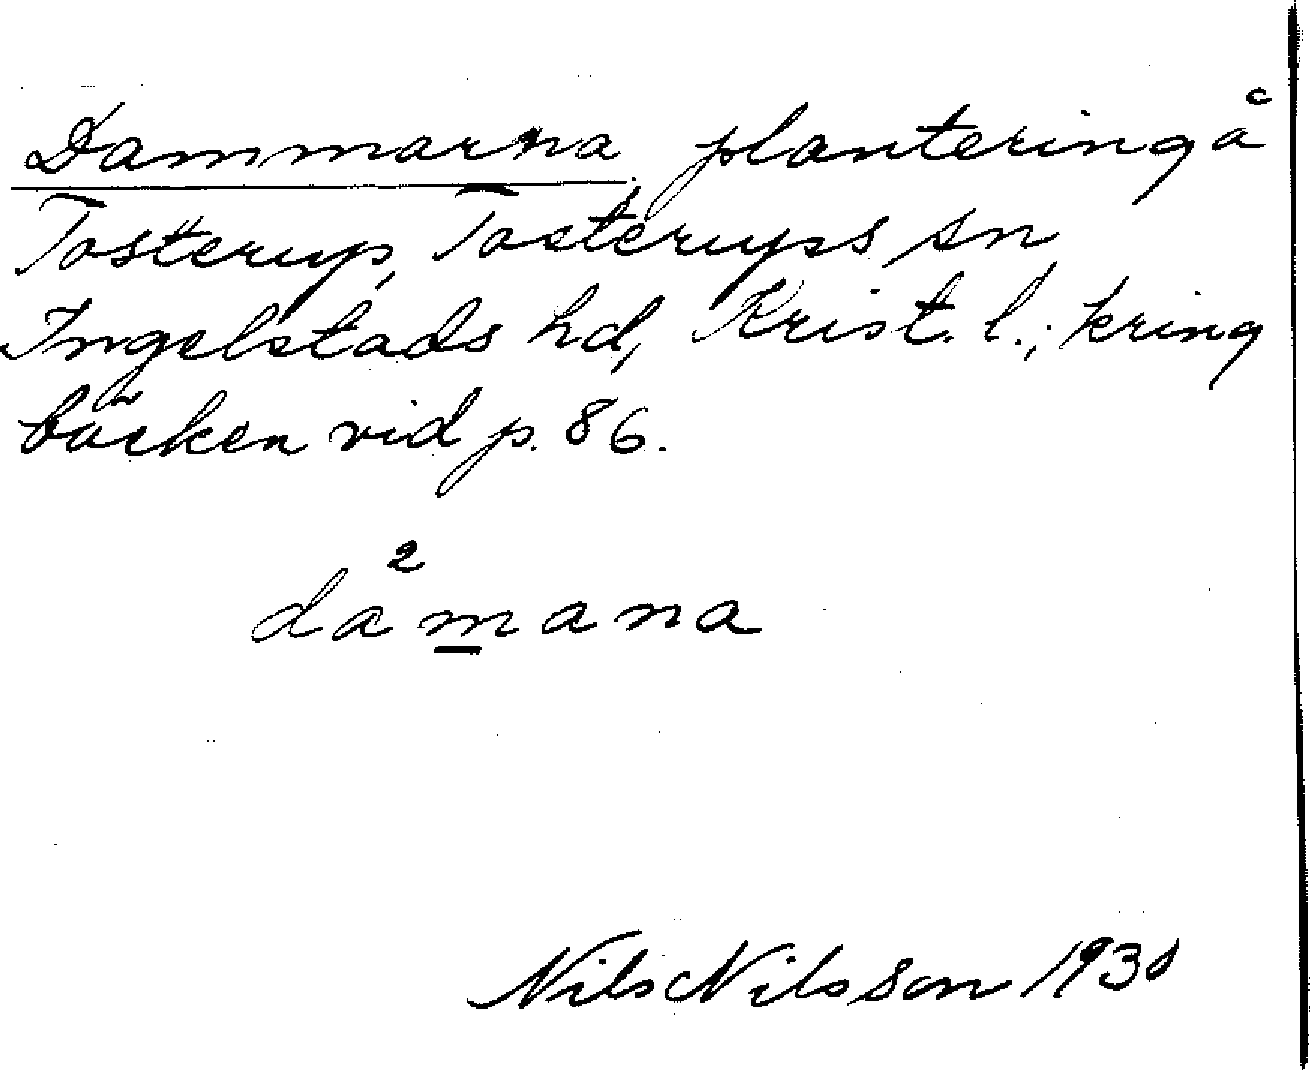 Dammarna plantering å
Tosterup, Tosterups sn
Ingelstads hd, Krist. l.; kring
bäcken vid p. 86.
da²mana
Nils Nilsson 1930